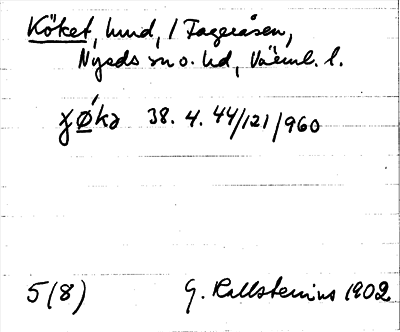 Köket, hund, / Fageråsen,
Nyeds sn o. hd, Värml. l.
38. 4. 44/121/960
5(8) G. Kallstenius 1902